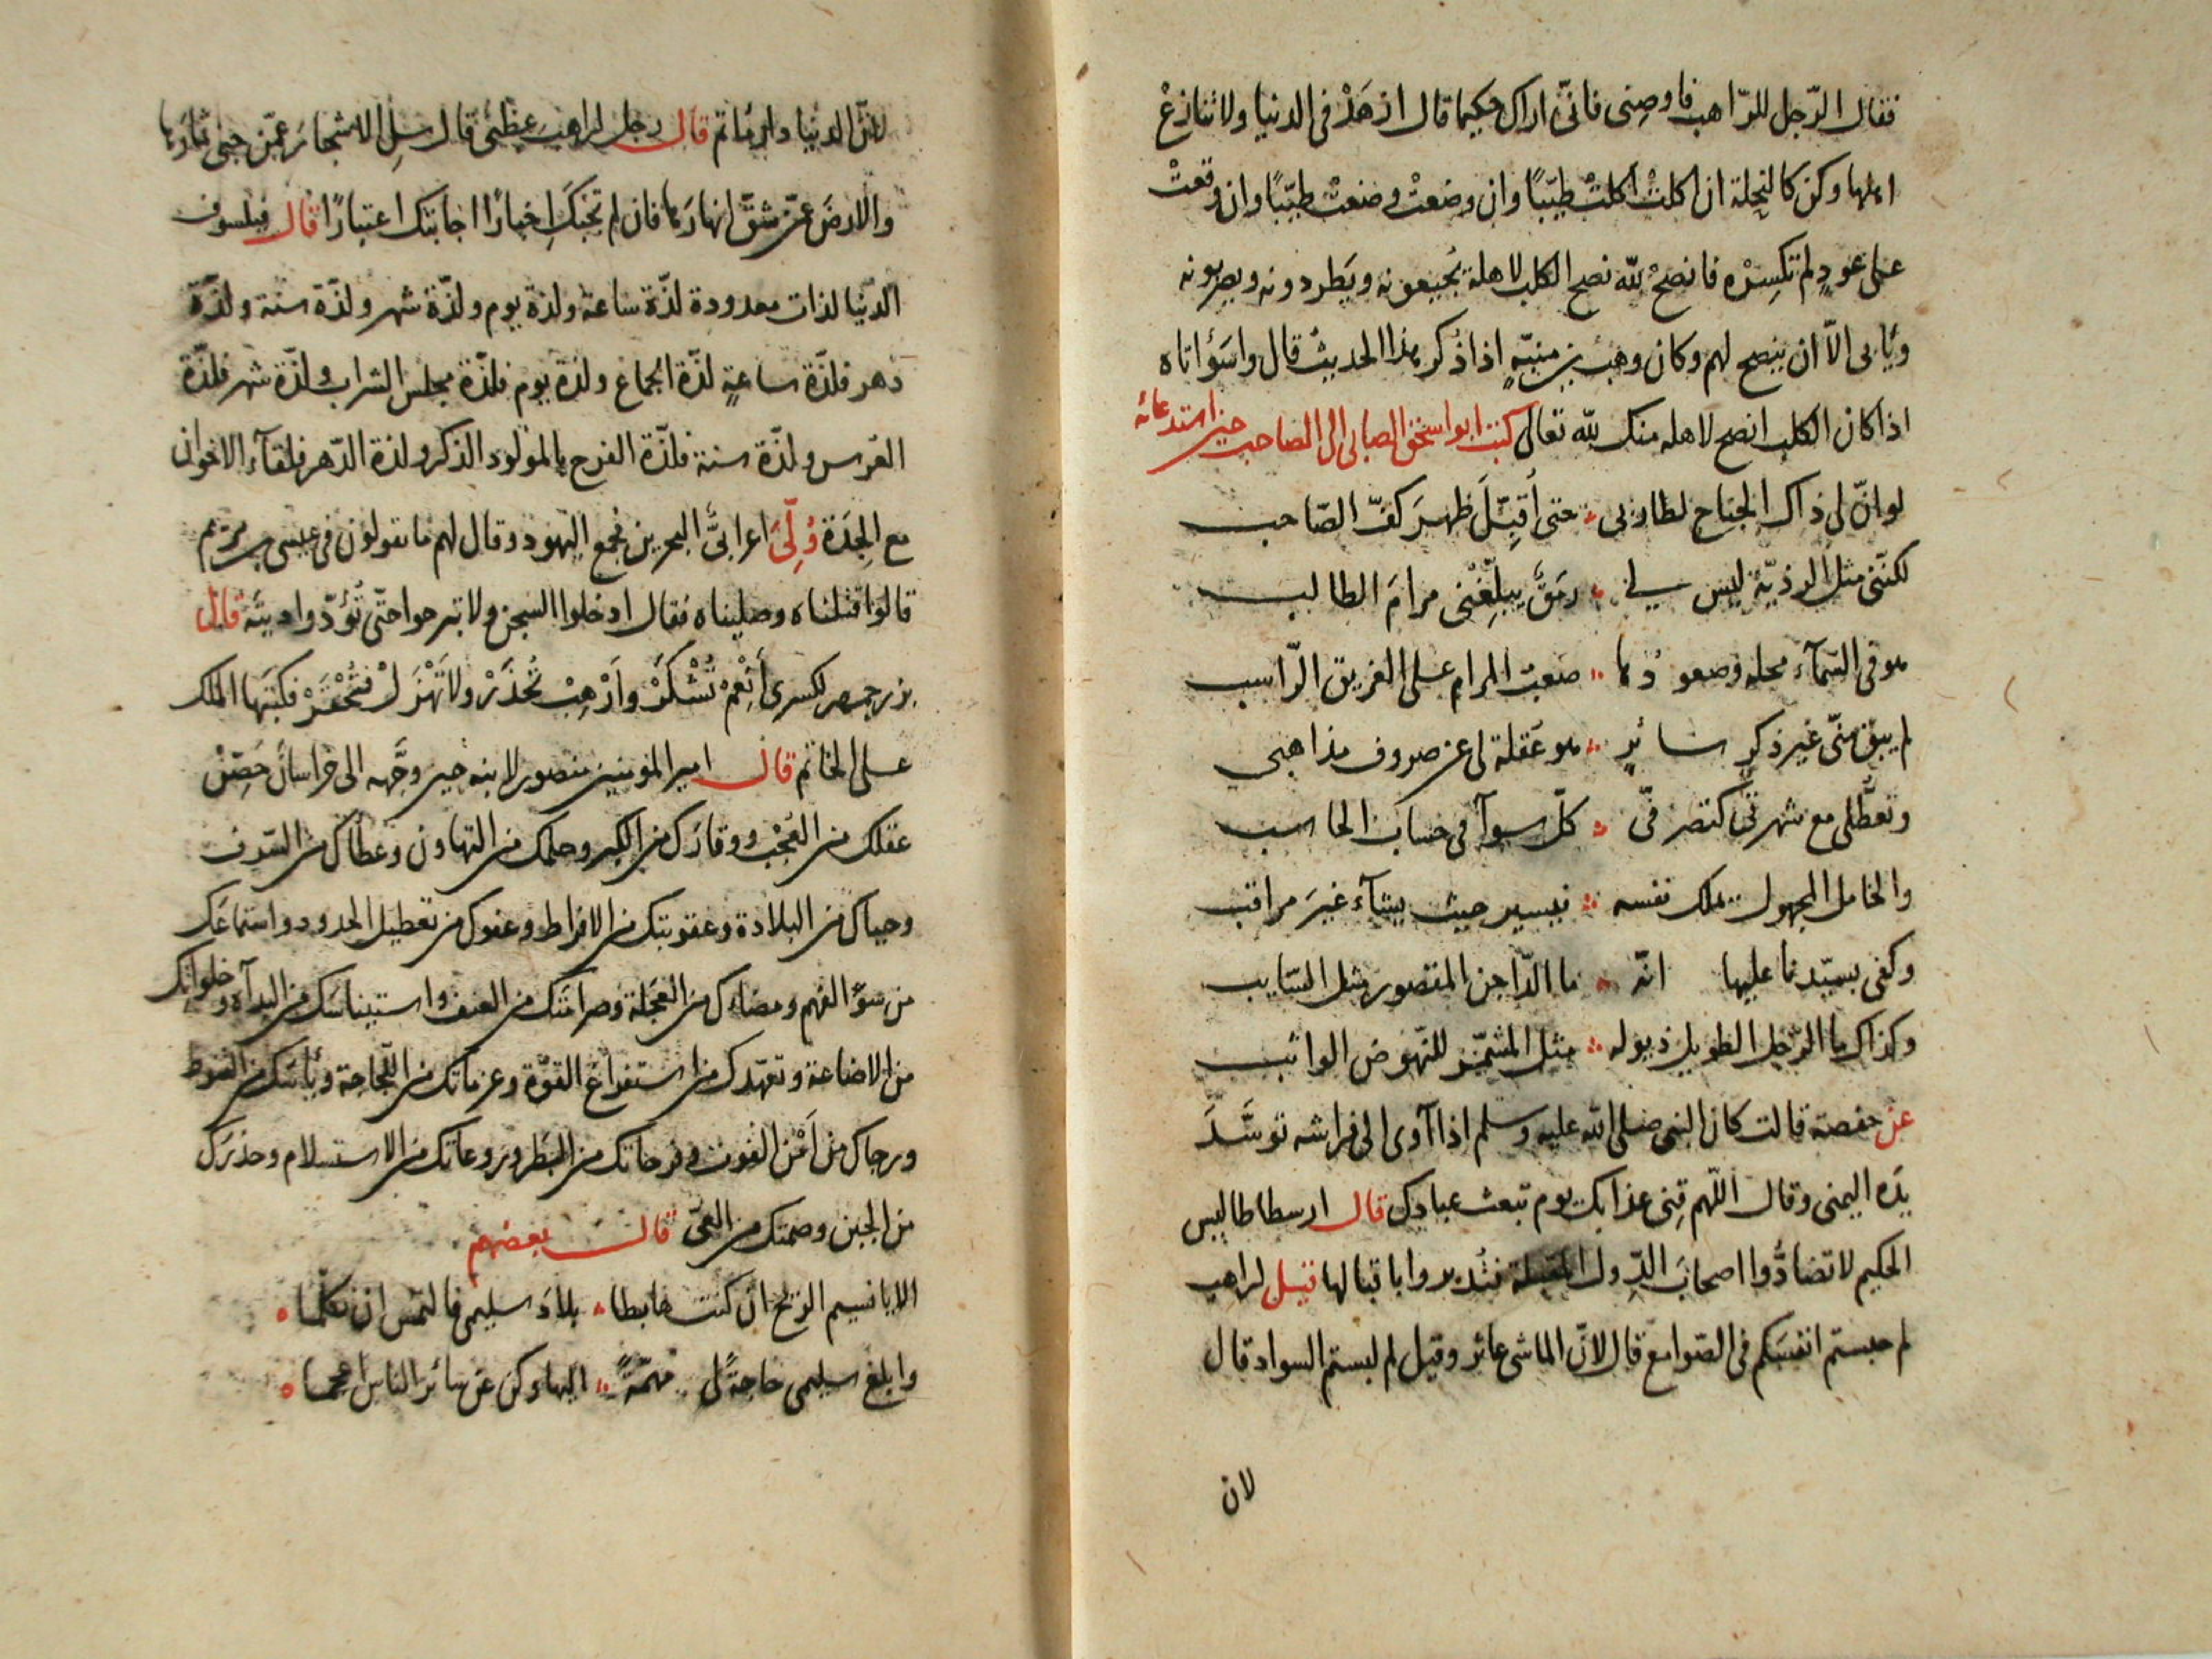 فقال الرّجل للرّاهب فاوصِنى فانّى اراك حكيما قال ازهَدْ فى الدنيا ولا تنازعْ
اهلها وكن كالنحلة ان اكلتْ اكلتْ طيّبًا وان وضعتْ وضعتْ طيّبًا وان وقعتْ
على عودٍ لم تكسِرْه فانصحْ لله نصح الكلب لاهلة يُجيعونه ويَطردونه ويضربونه
ويأبى الّا ان ينصح لهم وكان وهب بن منبّهٍ اذا ذكر هذا الحديث قال واسَوْاتاه
اذا كان الكلب انصح لاهله منك لله تعالى كتب ابو اسحٰق الصابى الى الصاحب حين استدعائه
لو انّ لى ذاك الجناح لطار بى حتى أقبِّلَ ظهرَ كفّ الصّاحب
لكنّنى مثل الرذيّة ليس لى رمَقٌ يبلّغْنى مرامَ الطالب
هو فى السّمآء محله وصعودُها صعبُ المرام على الغريق الرّاسب
لم يبق منّى غير ذكرٍ سائرٍ هو عُقلة لى عن صروف مذاهبى
وتعطّلى مع شهرتى كتصرفّى كلّ سوآ فى حساب الحاسب
والخامل المجهول يملك نفسه فيسير حيث يشآء غيرَ مراقب
وكفى بسيّدنا عليها انّه ما الدّاجن المقصور مثل السّايب
وكذاك ما الرّجل الطويل ذيوله مثل المشمّر للنّهوض الواثب
عن حفصة قالت كان النبى صلى الله عليه وسلم اذا آوى الى فراشه توسّدَ
يدَه اليمنى وقال اللّهم قِنى عذابك يوم تبعث عبادك قال ارسطاطاليس
الحكيم لا تضادُّوا اصحابَ الدّول المقبلة فتُدبروا باقبالها قيل لراهب
لم حبستم انفسَكم فى الصّوامع قال لانّ الماشى عاثر وقيل لم لبستم السواد قال
لان
لانّ الدنيا دار مأتم قال رجل لراهب عِظْنى قال سلِ الاشجارَ عمّن جنى ثمارَها
والارضَ عمّن شقّ انهارَها فان لم تجبْكَ اخبارًا اجابتك اعتبارًا قال فيلسوف
الدّنيا لذات معدودة لذّة ساعة ولذة يوم ولذّة شهر ولذّة سنة ولذّة
دهر فلذّة ساعةٍ لذّة الجماع ولذة يوم فلذّة مجلس الشراب ولذّة شهر فلذّة
العرس ولذّة سنة فلذّة الفرح بالمولود الذكر ولذة الدّهر فلقآء الاخوان
مع الجِدَة وُلِّىَ اعرابىٌّ البحرين فجمع اليهود وقال لهم ما تقولون فى عيسى بن مريم
قالوا قتلناه وصلبناه فقال ادخلوا السّجن ولا تبرحوا حتّى تُؤدّوا ديتَه قال
بزرجمهر لكسرى أَنعِمْ تُشْكَرْ وأَرْهِبْ تُحْذَرْ ولا تَهْزَلْ فتُحْقَرْ فكتبها الملك
على الخاتم قال امير المؤمنين منصور لابنه حين وجَّهه الى خراسان حَصِّنْ
عقلك من العُجْب ووقارَك من الكبر وحلمك من التهاون وعطاك من السّرف
وحياك من البلادة وعقوبتك من الافراط وعفوك من تعطيل الحدود واستماعَك
من سؤ الفهم ومضاءك من العَجَلة وصرامَتك من العنف واستيناسَك من البذآه وخلواتك
من الاضاعة وتعهّدك من استفراغ القوّة وعزماتك من اللّجاجة ويأسَك من القنوط
ورجاك من أَمْن الفوت وفرحاتك من البَطَر وروعاتك من الاستسلام وحذرَك
من الجبن وصمتك من العىّ قال بعضهم
الا يا نسيم الرّيح ان كنت هابطا بلادَ سليمى فالتمس ان تكلّما
وابلغ سليمى حاجةً لى مهمّةً اليها وكن عن سائر الناس اعجما